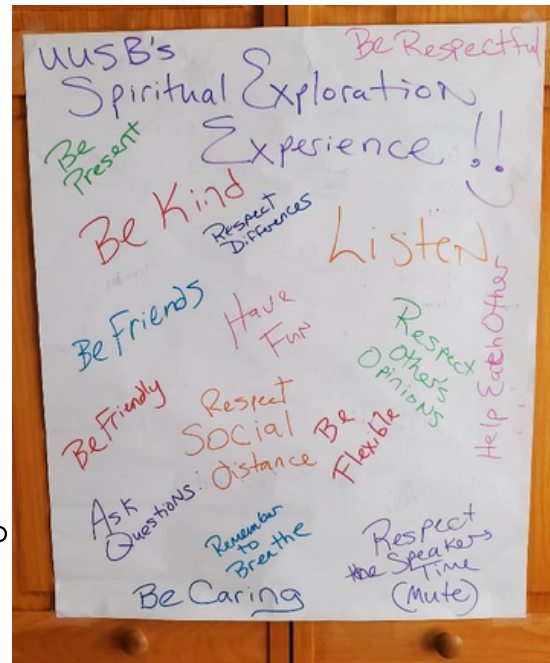 UUSB's
Be Respectful
Spiritual Exploration
Experience !!
Be
Present
Be Kind
Respect
Differences
Listen
Be Friends
Have
Fun
Respect
Other's
Opinions
Help Each Other
Be Friendly
Respect
Social
distance
Be
Flexible
Ask
Questions:
Remember
to
Breathe
Respect
the Speakers
Time
(Mute)
Be Caring